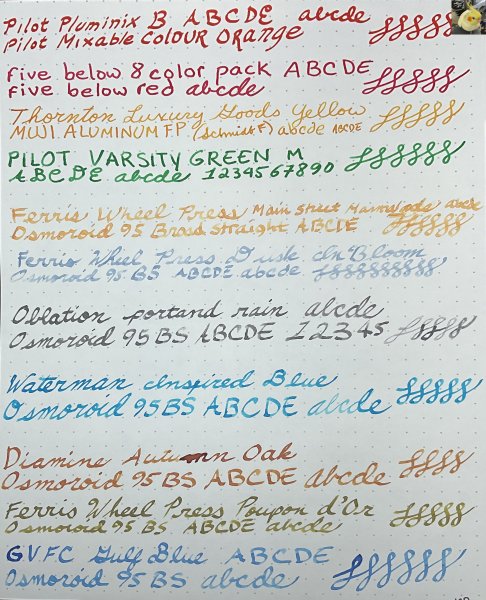 Pilot Pluminix B ABCDE abcde
Pilot Mixable Colour Orange
Five below 8 color pack ABCDE
Five below red abcde
Thornton Luxury Goods Yellow
MUJI ALUMINUM FP (Schmidt F) abcde ABCDE
PILOT VARSITY GREEN M
ABCDE abcde 1234567890
Ferris Wheel Press Main Street Marmalade abcde
Osmoroid 95 Broad Straight ABCDE
Ferris Wheel Press Dusk In Bloom
Osmoroid 95 BS ABCDE abcde
Oblation portland rain abcde
Osmoroid 95 BS ABCDE 12345
Waterman Inspired Blue
Osmoroid 95 BS ABCDE abcde
Diamine Autumn Oak
Osmoroid 95 BS ABCDE abcde
Ferris Wheel Press Poupon d'Or
Osmoroid 95 BS ABCDE abcde
GVFC Gulf Blue ABCDE
Osmoroid 95 BS abcde